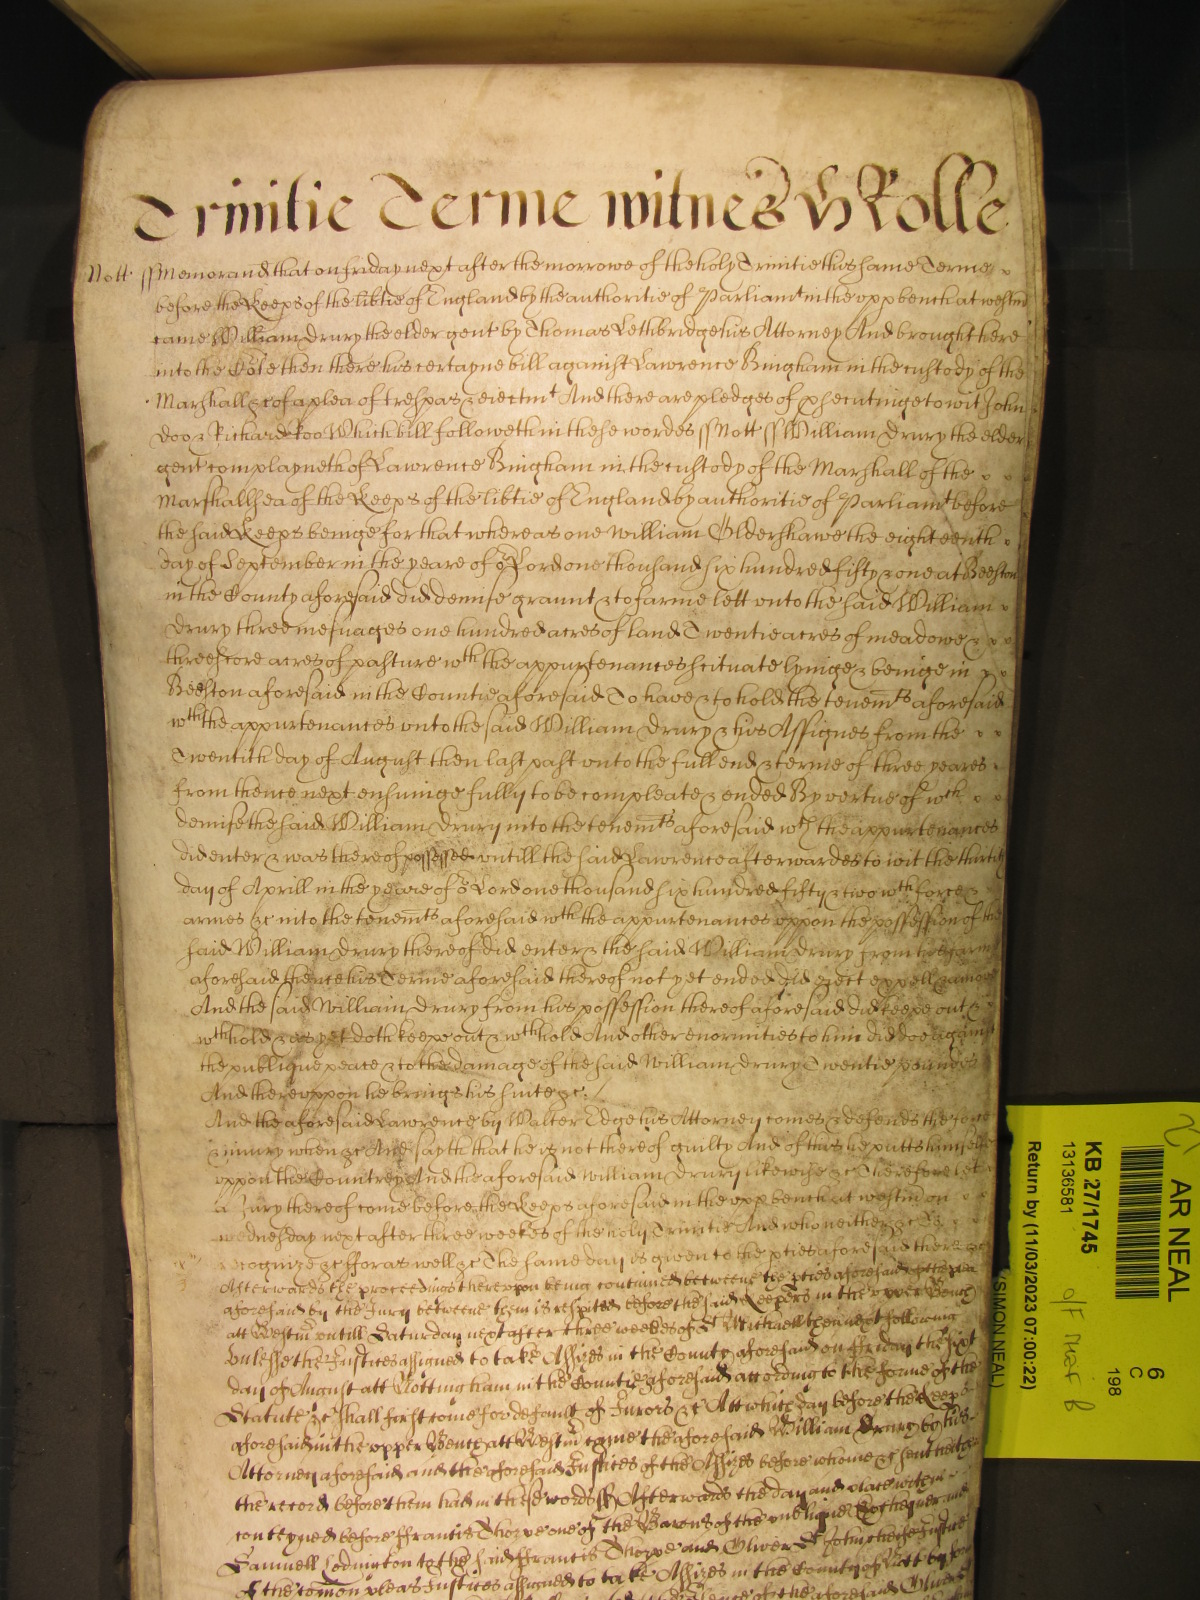 Trinitie Terme witnes H Rolle
Nott ss Memorand that on friday next after the morrowe of the holy Trinitie this same Terme
before the Keeps of the libtie of England by the authoritie of Parliamt in the upp bench at westm
came William Drury the elder gent by Thomas Lethbridge his Attorney And brought here
into the Cote then there his certayne bill against Lawrence Bingham in the custody of the
Marshall &c of a plea of trespas & eiectmt And there are pledges of psecutinge to wit John
Doo & Richard Roo Which bill followeth in these wordes ss Nott ss William Drury the elder
gent complayneth of Lawrence Bingham in the custody of the Marshall of the
Marshallsea of the Keeps of the libtie of England by authoritie of Parliamt before
the said Keeps beinge for that whereas one William Oldershawe the eighteenth
day of September in the yeare of or Lord one thousand six hundred fifty & one at Beeston
in the County aforesaid did demise graunt & to farme lett unto the said William
Drury three mesuages one hundred acres of land Twentie acres of meadowe &
threescore acres of pasture wth the appurtenances scituate lyinge & beinge in
Beeston aforesaid in the Countie aforesaid To have & to hold the tenemts aforesaid
wth the appurtenances unto the said William Drury & his Assignes from the
Twentith day of August then last past unto the full end & terme of three yeares
from thence next ensuinge fully to be compleate & ended By vertue of wch
demise the said William Drury into the tenemts aforesaid wth the appurtenances
did enter & was thereof possessed untill the said Lawrence afterwardes to wit the
day of Aprill in the yeare of or Lord one thousand six hundred fifty & two wth force &
armes &c into the tenemts aforesaid wth the appurtenances uppon the possession of the
said William Drury thereof did enter & the said William Drury from his farme
aforesaid thence his Terme aforesaid thereof not yet ended did eiect expell & amove
And the said William Drury from his possession thereof aforesaid did keepe out &
wthhold & as yet doth keepe out & wthhold And other enormities to him did doe against
the publique peace & to the damage of the said William Drury Twentie poundes
And thereuppon he brings his suite &c
And the aforesaid Lawrence by Walter Edge his Attorney comes & defends the force
& iniury when &c And sayth that he is not thereof guilty And of this he putts himselfe
uppon the Countrey And the aforesaid William Drury likewise &c Therefore let
a Jury thereof come before the Keeps aforesaid in the upp bench at westm on
wednesday next after three weekes of the holy Trinitie And who neither &c To
recognize &c fforas well &c The same day is given to the pties aforesaid there &c
Afterwards the proceedings thereuppon being continued betweene the pties aforesaid
aforesaid by the Jury betweene them is respited before the said Keepers in the upper Bench
att Westm untill Saturday next after three weekes of St Michaell then next following
Unlesse the Justices assigned to take Assizes in the County aforesaid on Friday the sixt
day of August att Nottingham in the Countie aforesaid according to the forme of the
Statute &c shall first come for default of Jurors &c Att which day before the Keeps
aforesaid in the upper Bench att Westm came the aforesaid William Drury by his
Attorney aforesaid and the aforesaid Justices of the Assizes before whome &c sent hether
the record before them had in these words ss Afterwards the day and place within
conteyned before ffrancis Thorpe one of the Barons of the publique Exchequer and
Samuell to the said ffrancis Thorpe and Oliver St John cheife Justice
of the comon pleas Justices assigned to take Assizes in the County of Nott by
of the aforesaid Oliver
AR NEAL
6
C
198
KB 27/1745
13136581
Return by (11/03/2023 07:00:22)
(SIMON NEAL)